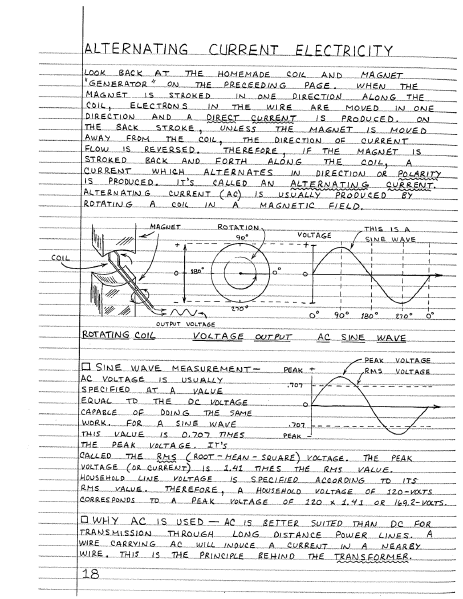 ALTERNATING CURRENT ELECTRICITY
LOOK BACK AT THE HOMEMADE COIL AND MAGNET
"GENERATOR" ON THE PRECEEDING PAGE. WHEN THE
MAGNET IS STROKED IN ONE DIRECTION ALONG THE
COIL, ELECTRONS IN THE WIRE ARE MOVED IN ONE
DIRECTION AND A DIRECT CURRENT IS PRODUCED. ON
THE BACK STROKE, UNLESS THE MAGNET IS MOVED
AWAY FROM THE COIL, THE DIRECTION OF CURRENT
FLOW IS REVERSED. THEREFORE, IF THE MAGNET IS
STROKED BACK AND FORTH ALONG THE COIL, A
CURRENT WHICH ALTERNATES IN DIRECTION OR POLARITY
IS PRODUCED. IT'S CALLED AN ALTERNATING CURRENT.
ALTERNATING CURRENT (AC) IS USUALLY PRODUCED BY
ROTATING A COIL IN A MAGNETIC FIELD.
MAGNET
COIL
OUTPUT VOLTAGE
ROTATION
90°
+
0
180°
0°
-
270°
VOLTAGE
THIS IS A
SINE WAVE
+
0
-
0° 90° 180° 270° 0°
ROTATING COIL VOLTAGE OUTPUT AC SINE WAVE
□ SINE WAVE MEASUREMENT —
AC VOLTAGE IS USUALLY
SPECIFIED AT A VALUE
EQUAL TO THE DC VOLTAGE
CAPABLE OF DOING THE SAME
WORK. FOR A SINE WAVE
THIS VALUE IS 0.707 TIMES
THE PEAK VOLTAGE. IT'S
CALLED THE RMS (ROOT-MEAN-SQUARE) VOLTAGE. THE PEAK
VOLTAGE (OR CURRENT) IS 1.41 TIMES THE RMS VALUE.
HOUSEHOLD LINE VOLTAGE IS SPECIFIED ACCORDING TO ITS
RMS VALUE. THEREFORE, A HOUSEHOLD VOLTAGE OF 120-VOLTS
CORRESPONDS TO A PEAK VOLTAGE OF 120 x 1.41 OR 169.2-VOLTS.
PEAK VOLTAGE
RMS VOLTAGE
PEAK +
.707
0
.707
PEAK -
□ WHY AC IS USED — AC IS BETTER SUITED THAN DC FOR
TRANSMISSION THROUGH LONG DISTANCE POWER LINES. A
WIRE CARRYING AC WILL INDUCE A CURRENT IN A NEARBY
WIRE. THIS IS THE PRINCIPLE BEHIND THE TRANSFORMER.
18